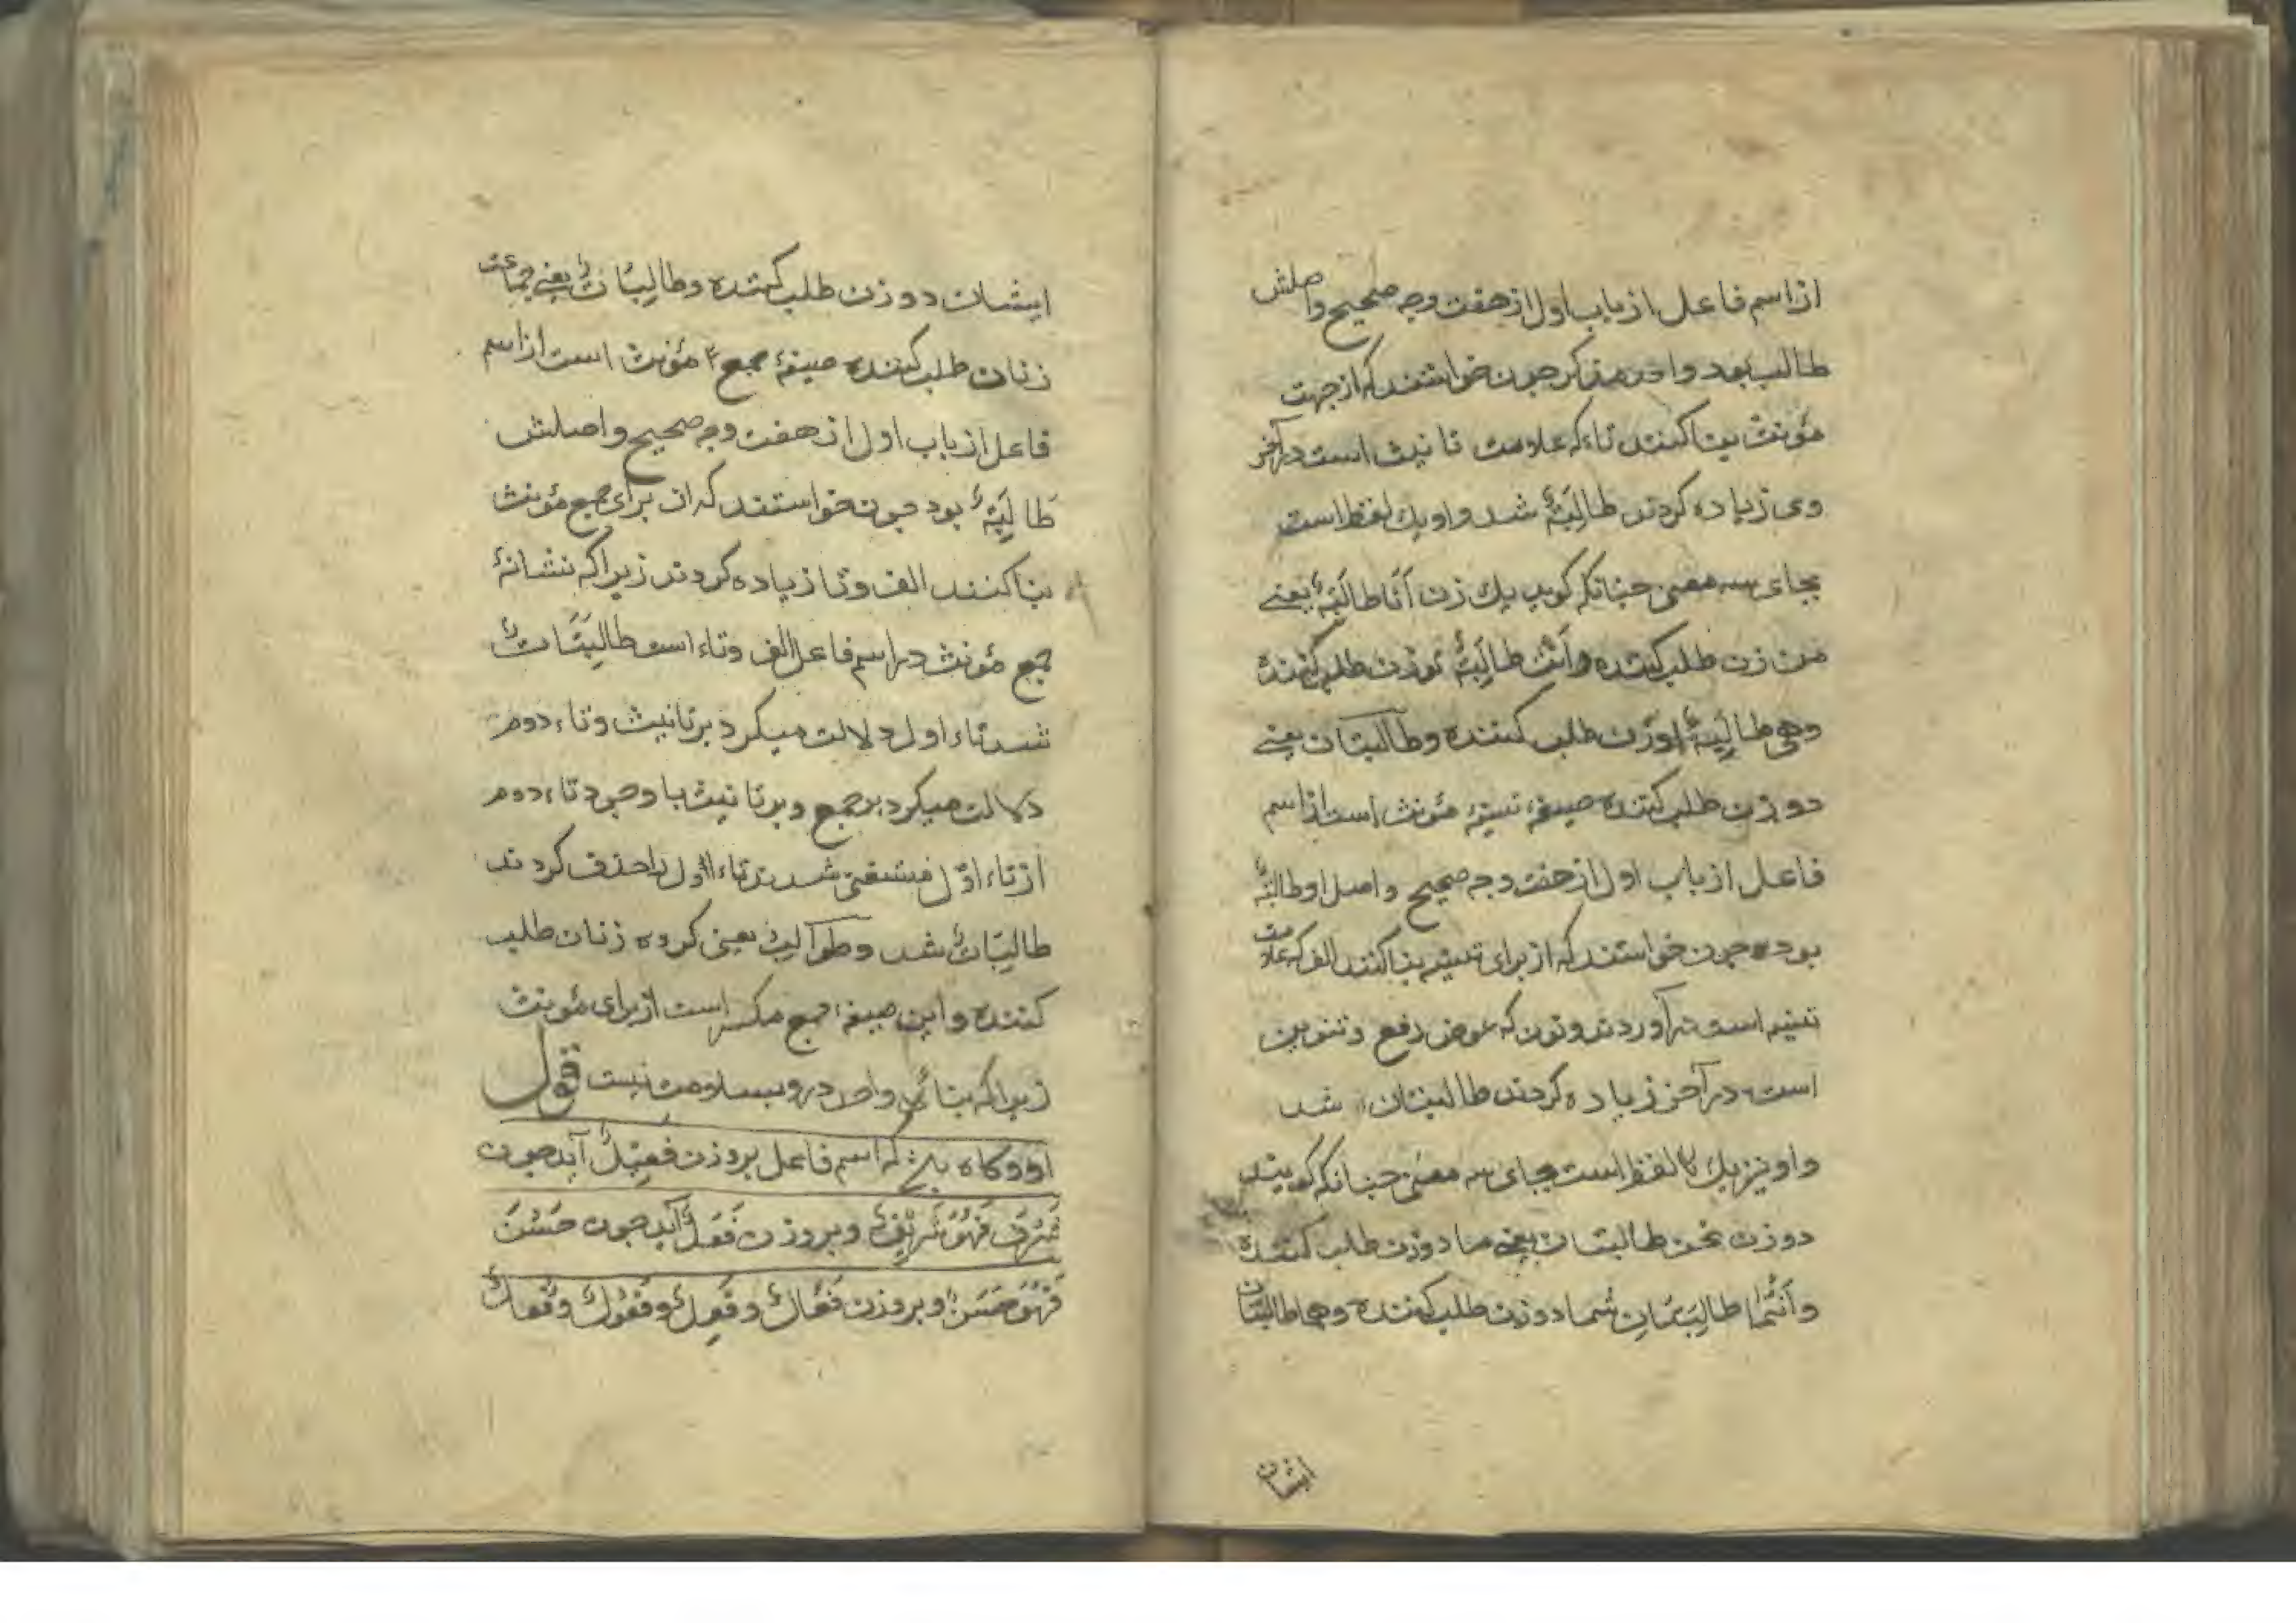 از اسم فاعل از باب اول از هفت وجه صحیح واصلش
طالب بود واحد مذکر چون خواستند که از جهت
مؤنث بنا کنند تاء که علامت تانیث است در آخر
وی زیاده کردند طالِبَةٌ شد واو یك لفظ است
بجای سه معنی چنانکه کوید یك زن اَنَا طالِبَةٌ یعنی
من زن طلب کننده واَنْتِ طالِبَةٌ تو زن طلب کننده
وهی طالِبَةٌ او زن طلب کننده وطالبتان یعنی
دو زن طلب کننده صیغهٔ تثنیهٔ مؤنث است از اسم
فاعل از باب اول از هفت وجه صحیح واصل او طالبةٌ
بوده چون خواستند که از برای تثنیه بنا کنند الف که علامت
تثنیه است در آوردند ونون که عوض رفع وتنوین
است در آخر زیاده کردند طالبتان شد
واو نیز یك لفظ است بجای سه معنی چنانکه کویند
دو زن نحن طالبتان یعنی ما دو زن طلب کننده
وَاَنْتُما طالِبَتَانِ شما دو زن طلب کننده وهما طالبتان
ایشان
ایشان دو زن طلب کننده وطالِبَاتٌ یعنی جماعت
زنان طلب کننده صیغهٔ جمع مؤنث است از اسم
فاعل از باب اول از هفت وجه صحیح واصلش
طَالِبَةٌ بود چون خواستند که از برای جمع مؤنث
بنا کنند الف وتا زیاده کردند زیرا که نشانهٔ
جمع مؤنث در اسم فاعل الف وتاء است طالِبَتَاتٌ
شد تاء اول دلالت میکرد بر تانیث وتاء دوم
دلالت میکرد بر جمع وبر تانیث با وجود تاء دوم
از تاء اوّل مستغنی شدند تاء اوّل را حذف کردند
طالِبَاتٌ شد وطَوَالِبُ یعنی کروه زنان طلب
کننده واین صیغهٔ جمع مکسر است از برای مؤنث
زیرا که بنائی واحد درو بسلامت نیست قول
او وکاه باشد که اسم فاعل بر وزن فَعِیْلٌ آید چون
شَرُفَ فَهُوَ شَرِیْفٌ وبر وزن فَعَلٌ آید چون حَسُنَ
فَهُوَ حَسَنٌ وبر وزن فَعَالٌ وفَعِلٌ وفَعُولٌ وفُعالٌ